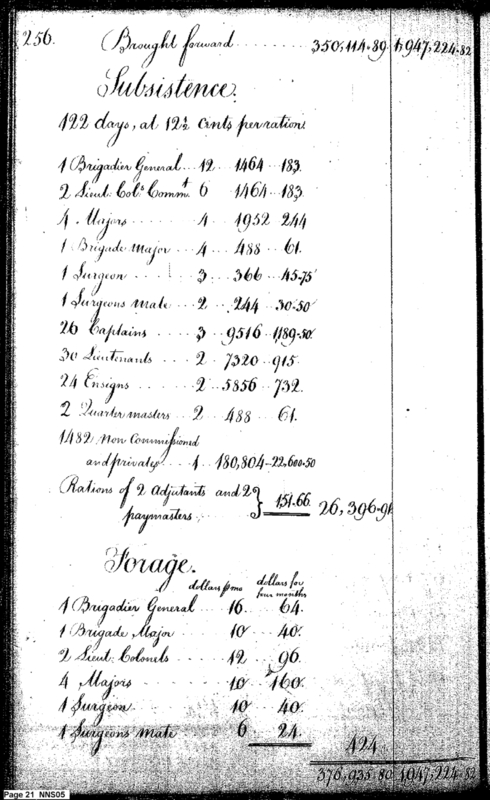 256.
Brought forward ........ 350,114.89 1,947,224.82
Subsistence.
122 days, at 12½ Cents per ration
1 Brigadier General .. 12 .. 1464 .. 183.
2 Lieut: Colˢ Commᵗ 6 1464 .. 183.
4 Majors ..... 4 .. 1952 .. 244
1 Brigade Major .. 4 .. 488 .. 61.
1 Surgeon .... 3 .. 366 .. 45.75
1 Surgeons Mate .. 2 .. 244 .. 30.50
26 Captains ... 3 .. 9516 .. 1,189.50
30 Lieutenants ... 2 .. 7320 .. 915.
24 Ensigns .... 2 .. 5856 .. 732.
2 Quarter masters .. 2 .. 488 .. 61.
1482 Non Commissioned
and privates ... 1 .. 180,804 .. 22,600.50
Rations of 2 Adjutants and 2 } 151.66. 26,396.91
paymasters
Forage.
dollars p mo dollars for
four months
1 Brigadier General ... 16 ... 64.
1 Brigade Major .... 10 ... 40.
2 Lieut: Colonels .... 12 ... 96.
4 Majors ..... 10 ... 160.
1 Surgeon ..... 10 ... 40.
1 Surgeons Mate 6 ... 24.
424
376,935.80 1,947,224.82
Page 21 NNS05